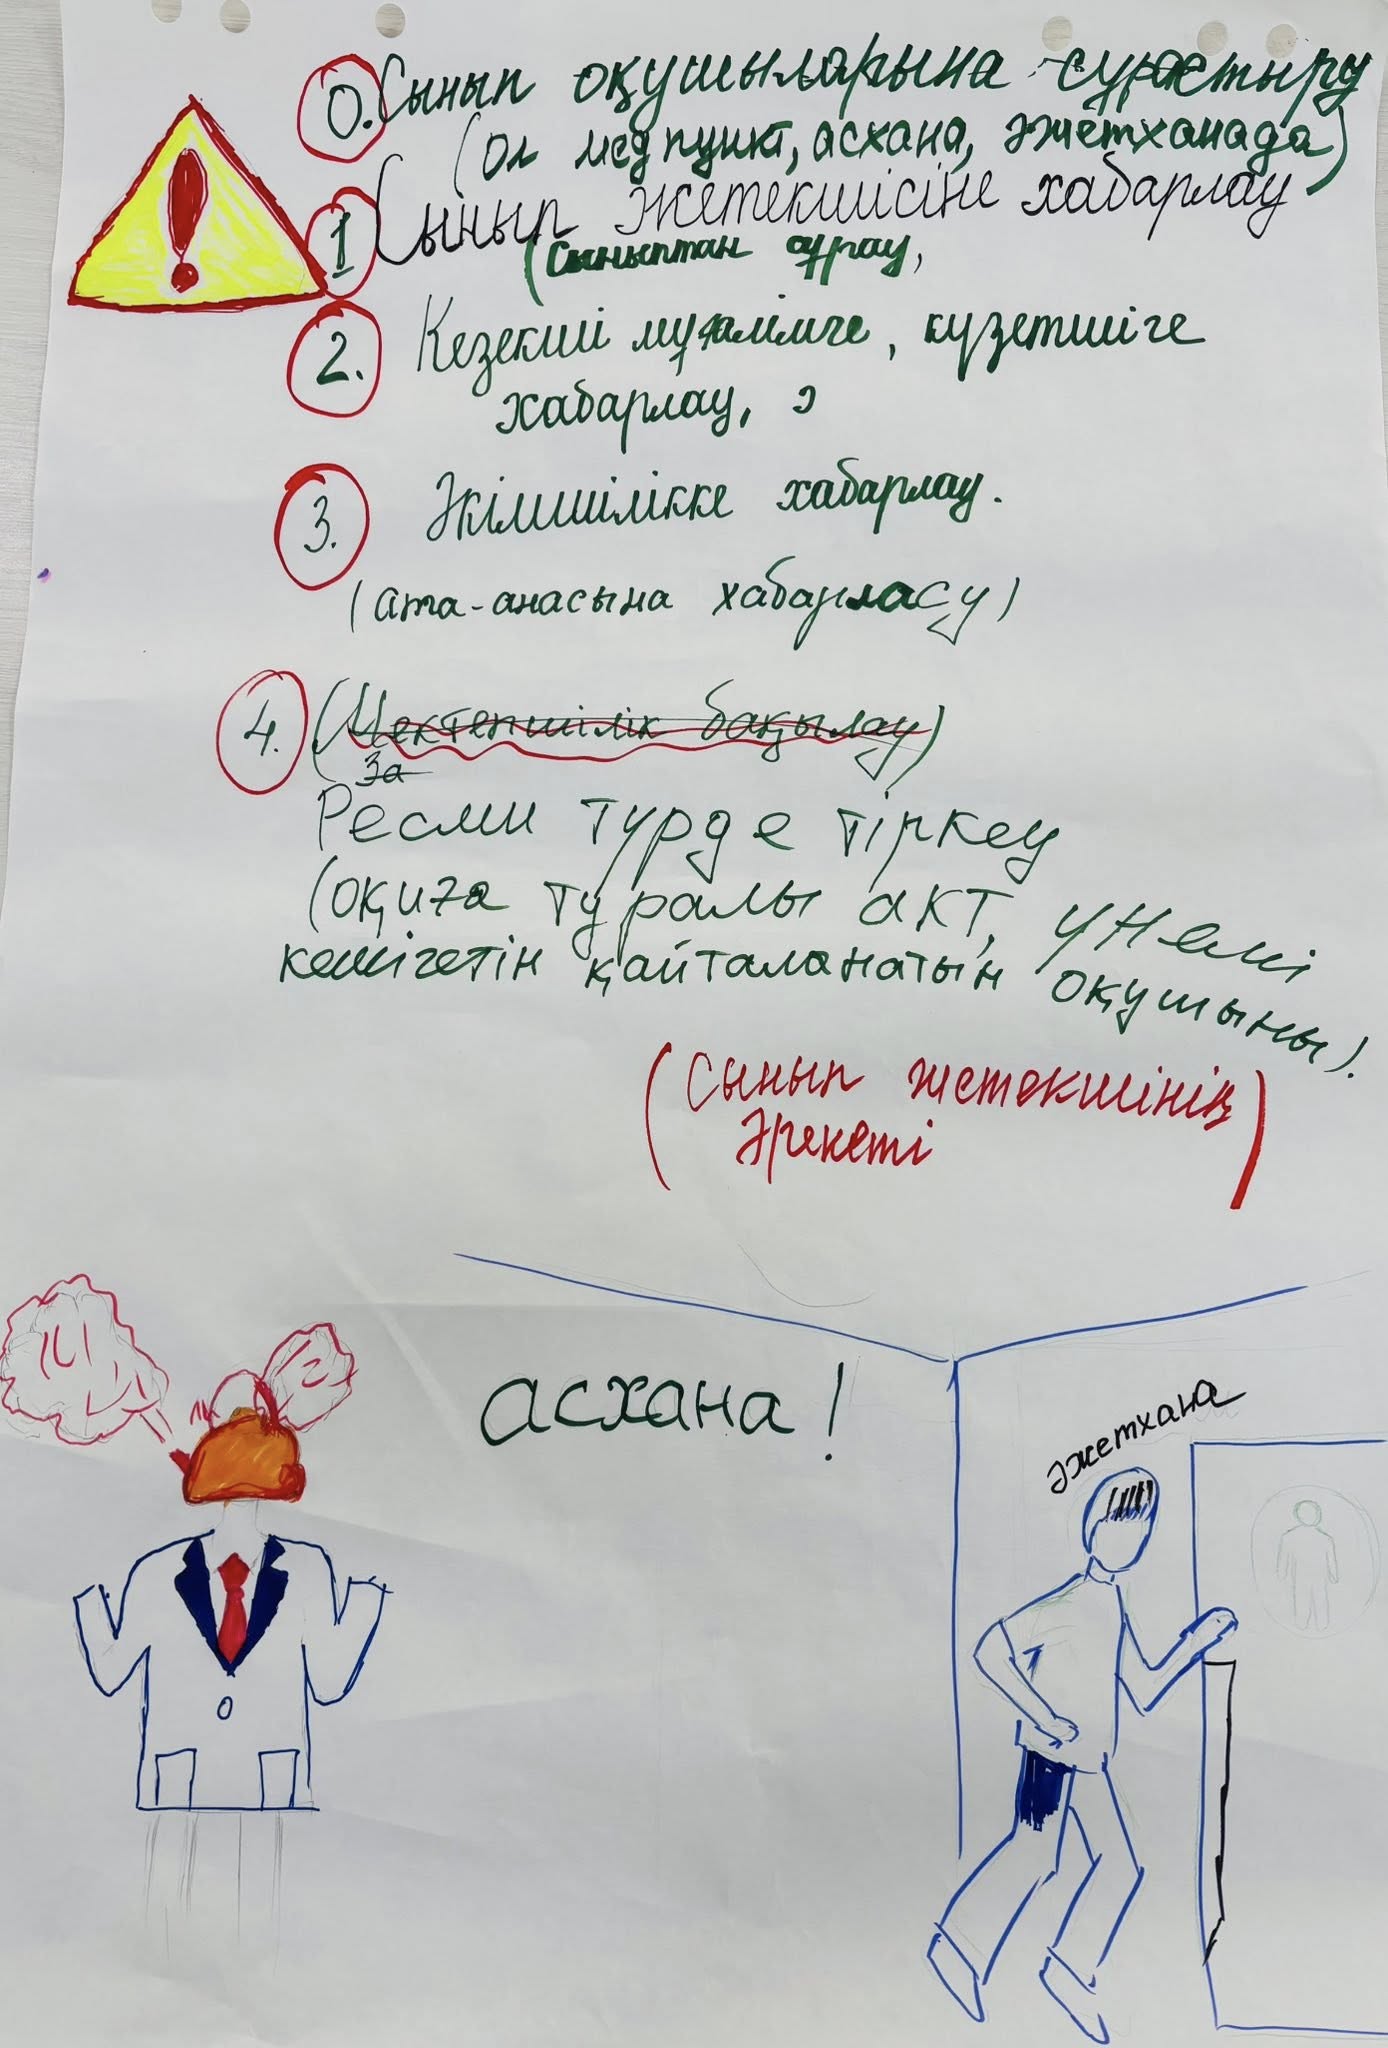 0. Сынып оқушыларына сұрастыру
(ол медпункт, асхана, әжетханада)
1 Сынып жетекшісіне хабарлау
(Сыныптан сұрау,
2. Кезекші мұғалімге, күзетшіге
хабарлау, э
3. Әкімшілікке хабарлау.
(ата-анасына хабарласу)
4. (Мектепшілік бақылау)
За
Ресми түрде тіркеу
(оқиға туралы акт, үнемі
кешігетін қайталанатын оқушыны).
(Сынып жетекшінің
әрекеті
)
асхана!
әжетхана